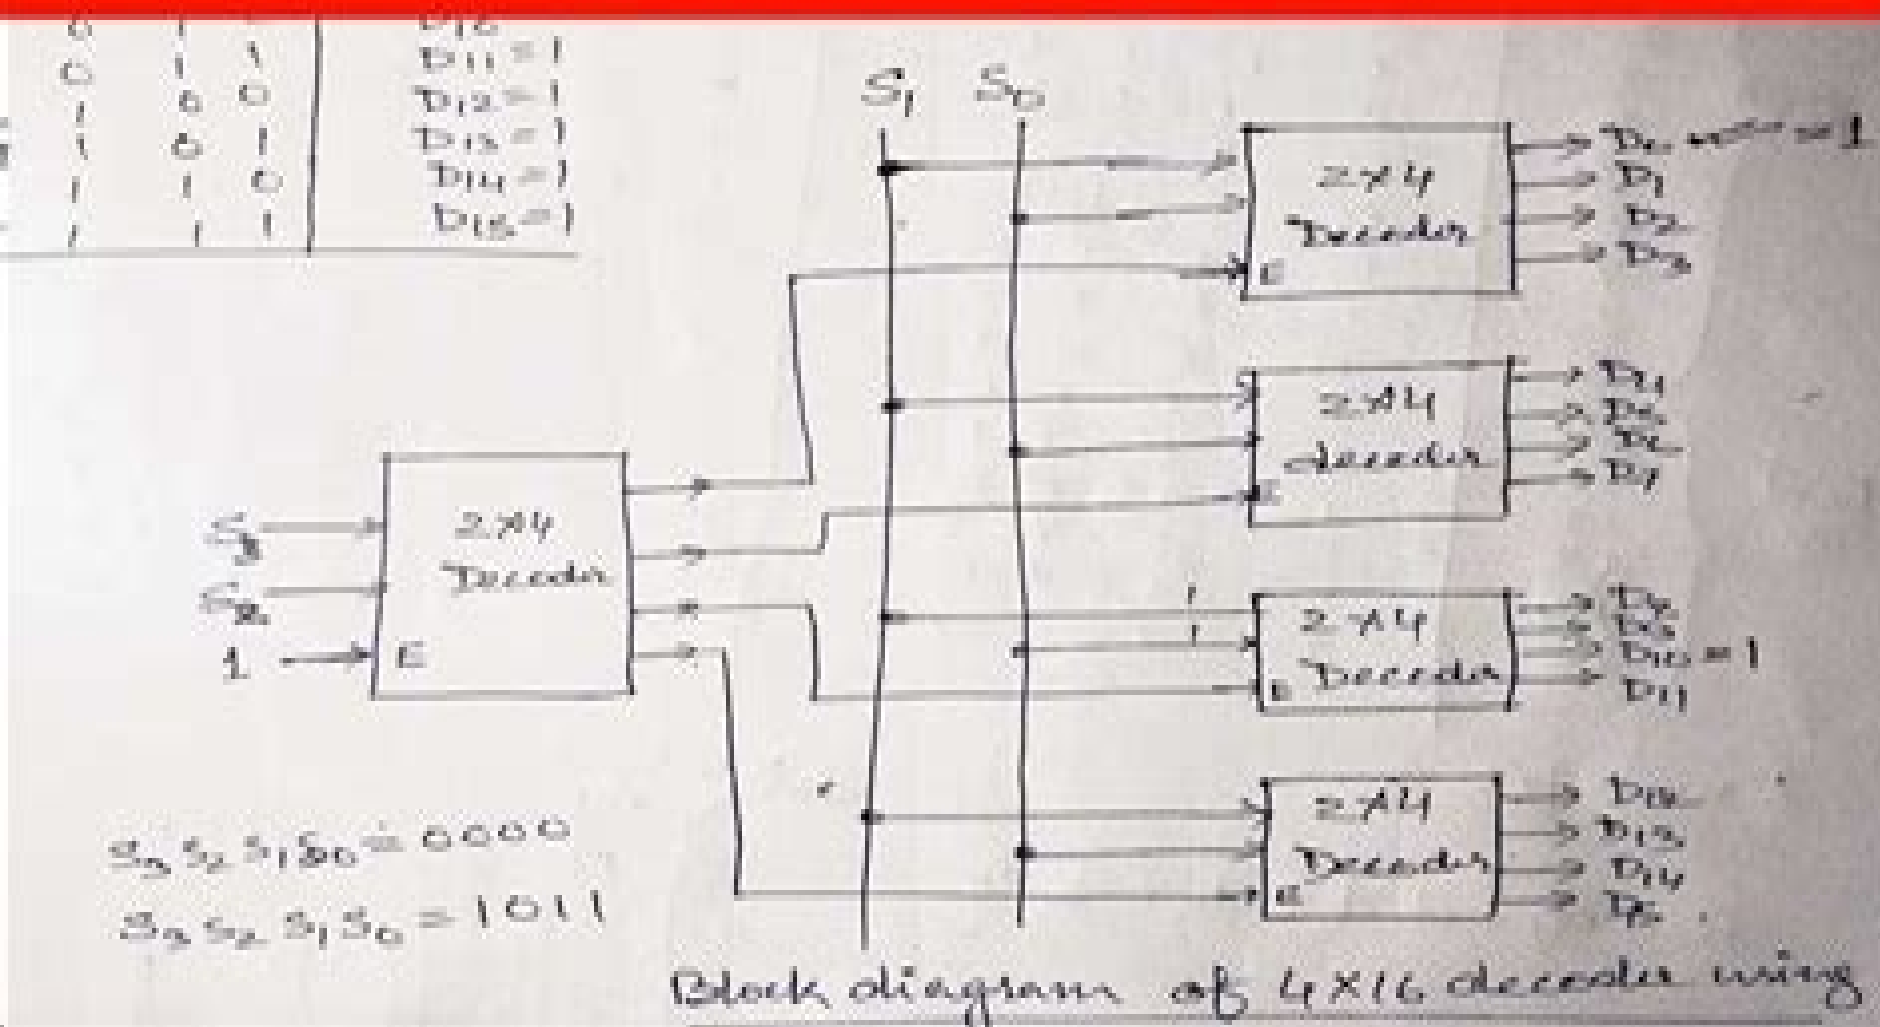 0 1 D10
0 1 1 D11 = 1
1 0 0 D12 = 1
1 0 1 D13 = 1
1 1 0 D14 = 1
1 1 1 D15 = 1
S1 S0
2x4
Decoder
E
D0 = 1
D1
D2
D3
2x4
decoder
E
D4
D5
D6
D7
S3
S2
1
2x4
Decoder
E
1
1
2x4
Decoder
E
D8
D9
D10 = 1
D11
2x4
Decoder
E
D12
D13
D14
D15
S3 S2 S1 S0 = 0000
S3 S2 S1 S0 = 1011
Block diagram of 4X16 decoder using